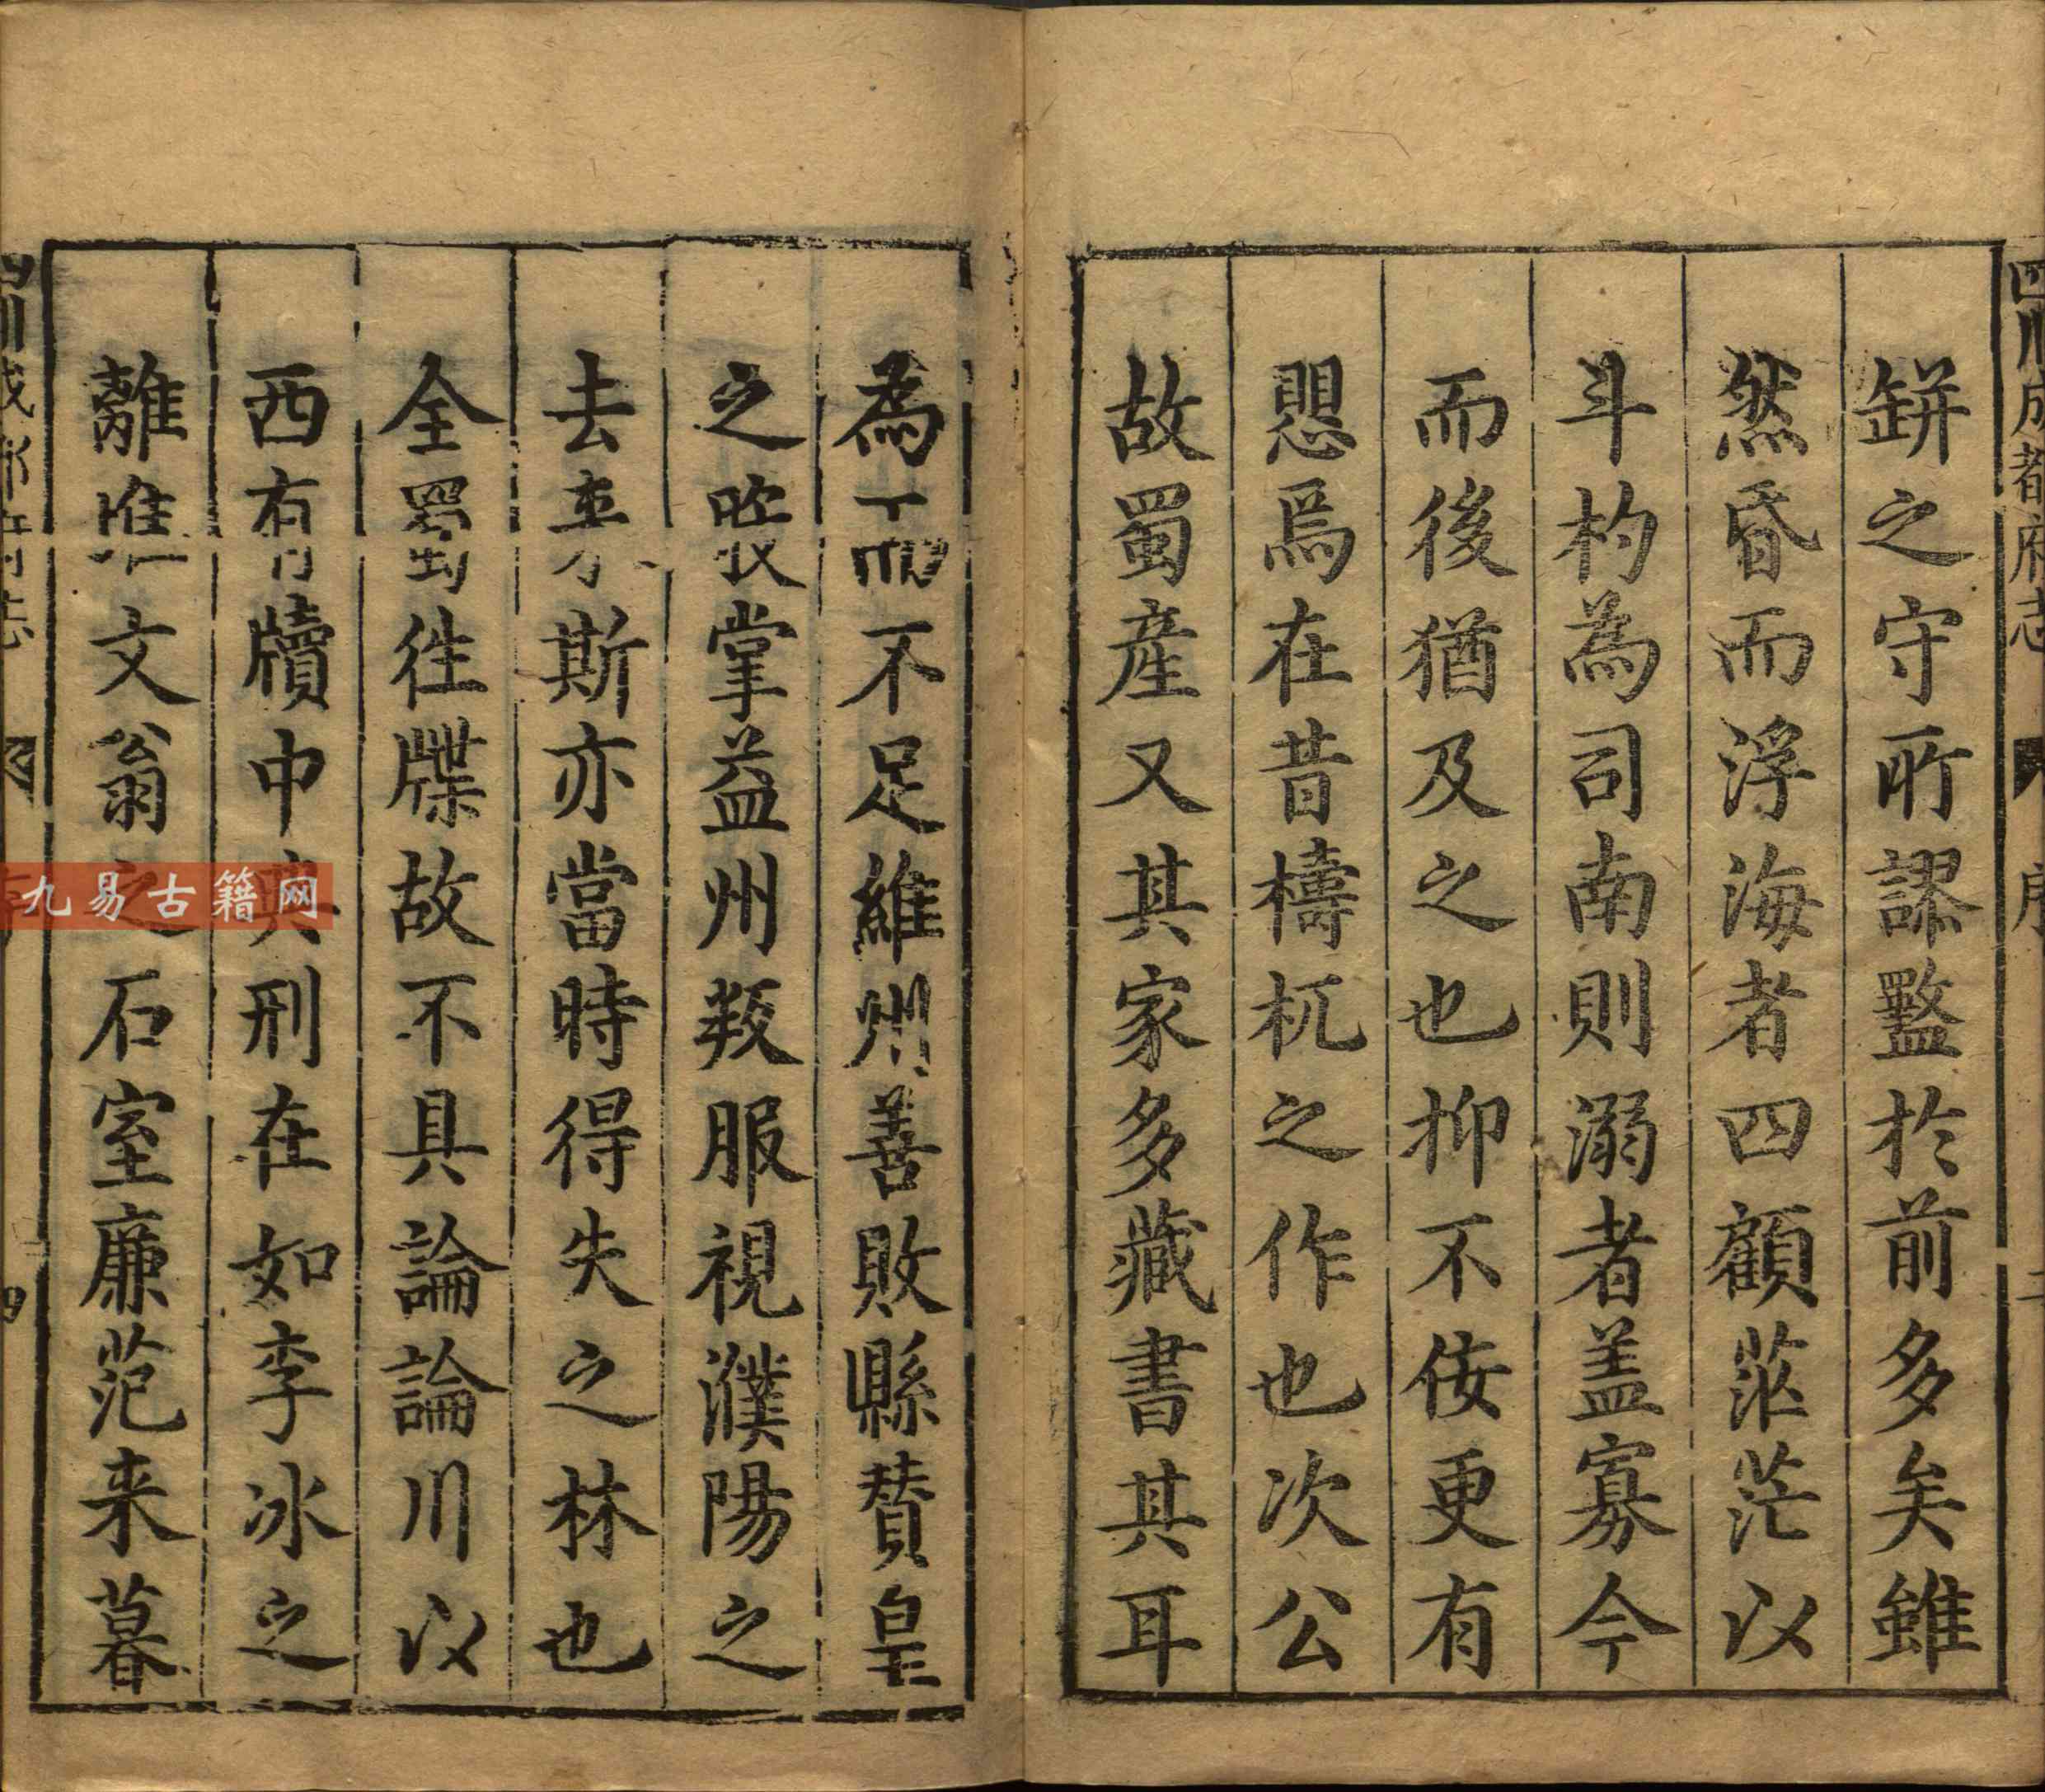 四川成都府志 序 二
缾之守所謬盭於前多矣雖
然昏而浮海者四顧茫茫以
斗杓為司南則溺者盖寡今
而後猶及之也抑不佞更有
愳焉在昔檮杌之作也次公
故蜀產又其家多藏書其耳
為 不足維州善敗縣賛皇
之 掌益州叛服視濮陽之
去 斯亦當時得失之林也
全蜀徃牒故不具論論川以
西有牘中典刑在如李冰之
離堆文翁之石室廉范来暮
四
九易古籍网